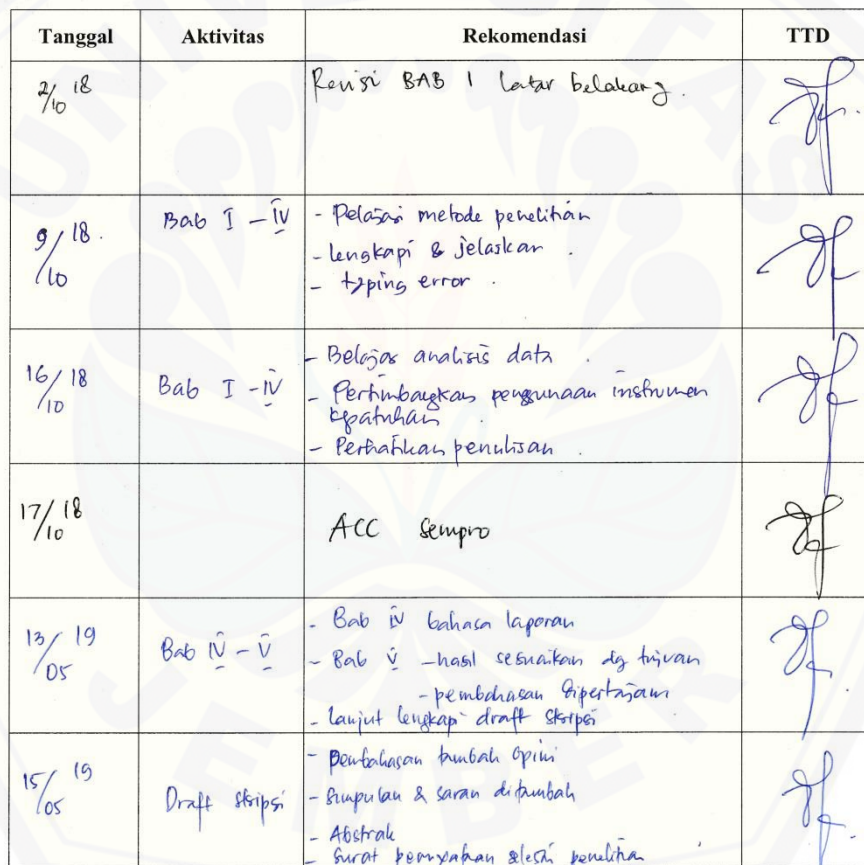 UNIVERSITAS
Tanggal Aktivitas Rekomendasi TTD
2/10 18 Revisi BAB 1 latar belakang.
9/10 18. Bab I - IV - Pelajari metode penelitian
- lengkapi & jelaskan.
- typing error.
16/10 18 Bab I - IV - Belajar analisis data.
- Pertimbangkan penggunaan instrumen
kepatuhan.
- Perhatikan penulisan.
17/10 18 ACC Sempro
13/05 19 Bab IV - V - Bab IV bahasa laporan
- Bab V - hasil sesuaikan dg tujuan
- pembahasan dipertajam
- lanjut lengkapi draft skripsi
15/05 19 Draft skripsi - pembahasan tambah opini
- simpulan & saran ditambah
- Abstrak
- surat pernyataan selesai penelitian
JEMBER